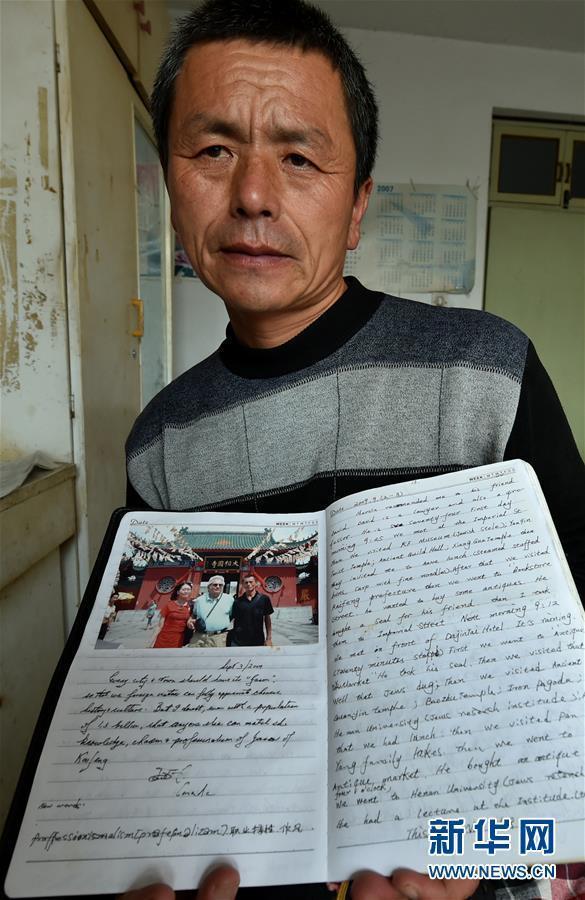 2007
Date
WEEK M T W T F S S
大相国寺
Sept 3/2009
Every city & Town should have its "Jason".
so that we foreign visitors can fully appreciate chinese
history culture. But I doubt, even with a population
of 1.3 billion, that anyone else can match the
knowledge, charm & professionalism of Jason of
Kaifeng
Canada
new words:
职业特性 作风
Date 2009.9.(2-3)
WEEK M T W T F S S
recommended me to his friend
David is a lawyer and also a
seventy-four. First day
morning 9:45 we met at the Imperial
visited Kaifeng Museum (Jews
Temple; Ancient Guild Hall; XiangGuo Temple
invited me to have lunch (steamed stuffed
with fine noodles) After that we visited
Kaifeng prefecture then we went to Bookstore
Street he wanted to buy some antiques. He
a seal for his friend then I took
them to Imperial Street. Next morning 9:12
We met in front of Dajintai Hotel It's raining.
seventy minutes First we went to Antique
Market He took his seal. Then we visited that
Well that Jews dug; then we visited Ancient
Guanyin temple; Baozhu temple; Iron Pagoda;
Henan University (Jews research institute);
that we had lunch. then we visited Pan
Yang family lakes. then we went to
Antique market. He bought an antique
four o'clock,
We went to Henan University (Jews
He had a lecture at the Institute.
This
新华网
WWW.NEWS.CN